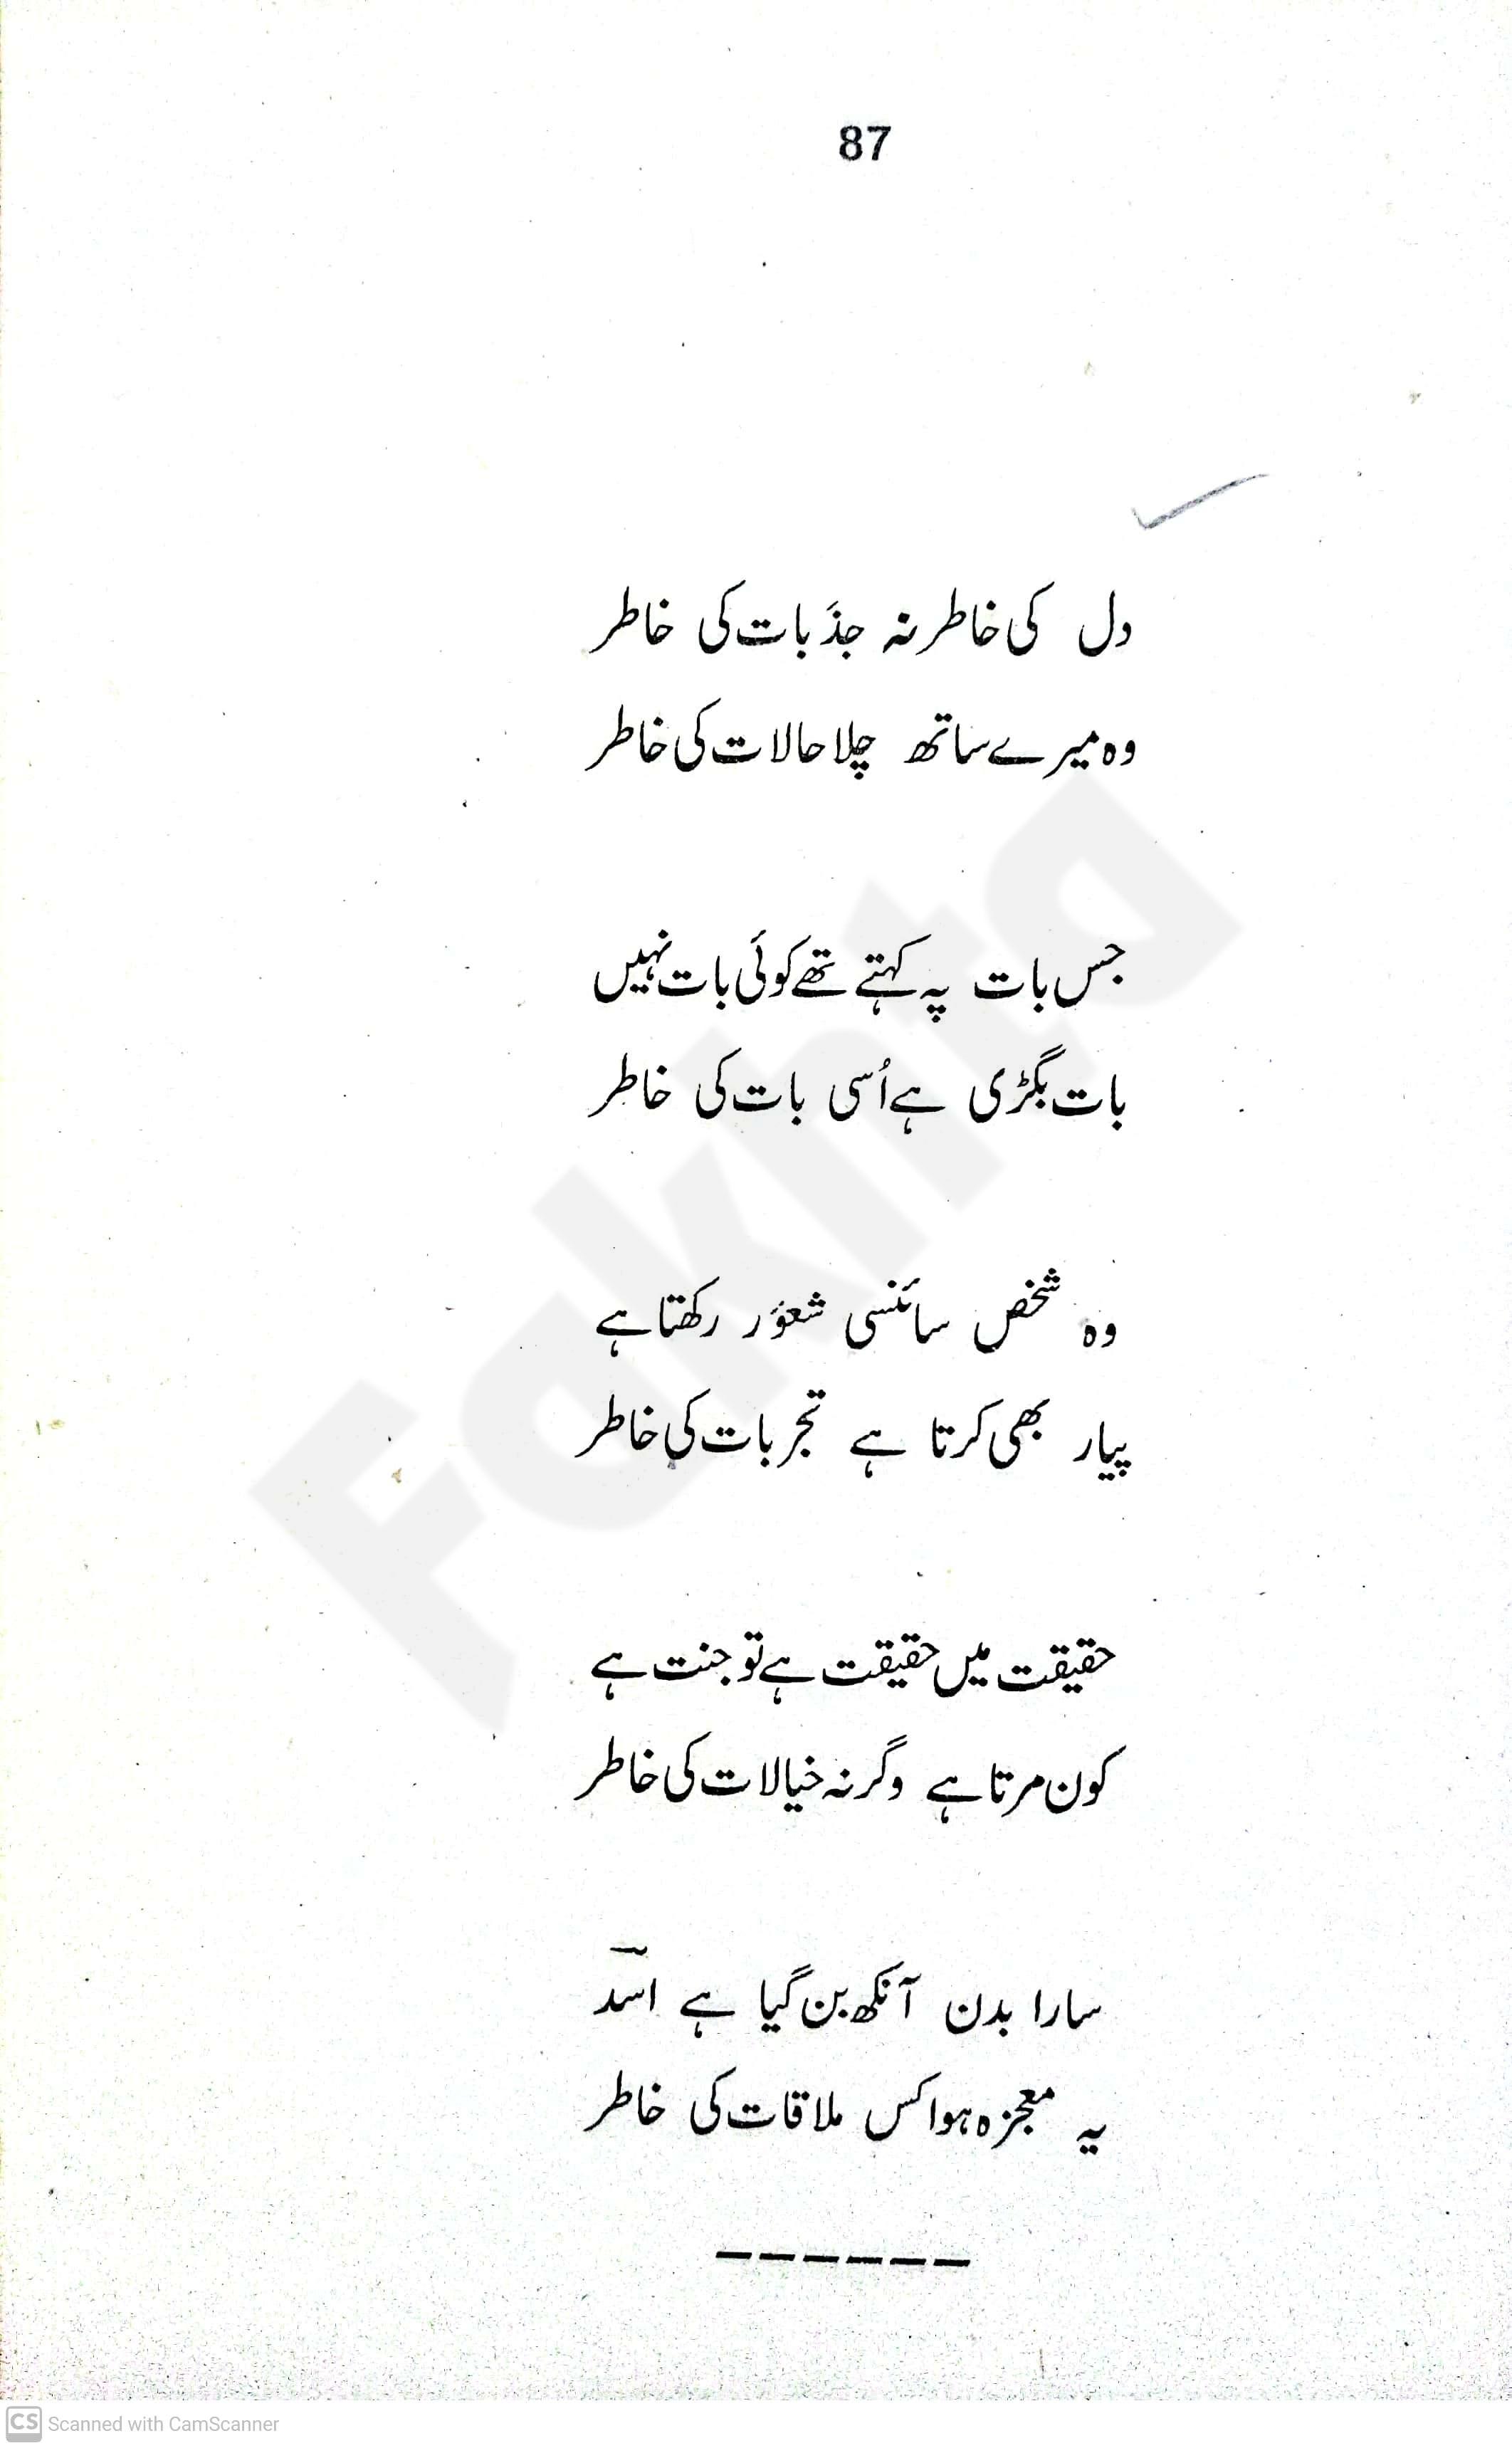 87
دل کی خاطر نہ جذبات کی خاطر
وہ میرے ساتھ چلا حالات کی خاطر
جس بات پہ کہتے تھے کوئی بات نہیں
بات بگڑی ہے اُسی بات کی خاطر
وہ شخص سائنسی شعور رکھتا ہے
پیار بھی کرتا ہے تجربات کی خاطر
حقیقت میں حقیقت ہے تو جنت ہے
کون مرتا ہے وگرنہ خیالات کی خاطر
سارا بدن آنکھ بن گیا ہے اسدؔ
یہ معجزہ ہوا کس ملاقات کی خاطر
Fakhta
CS Scanned with CamScanner